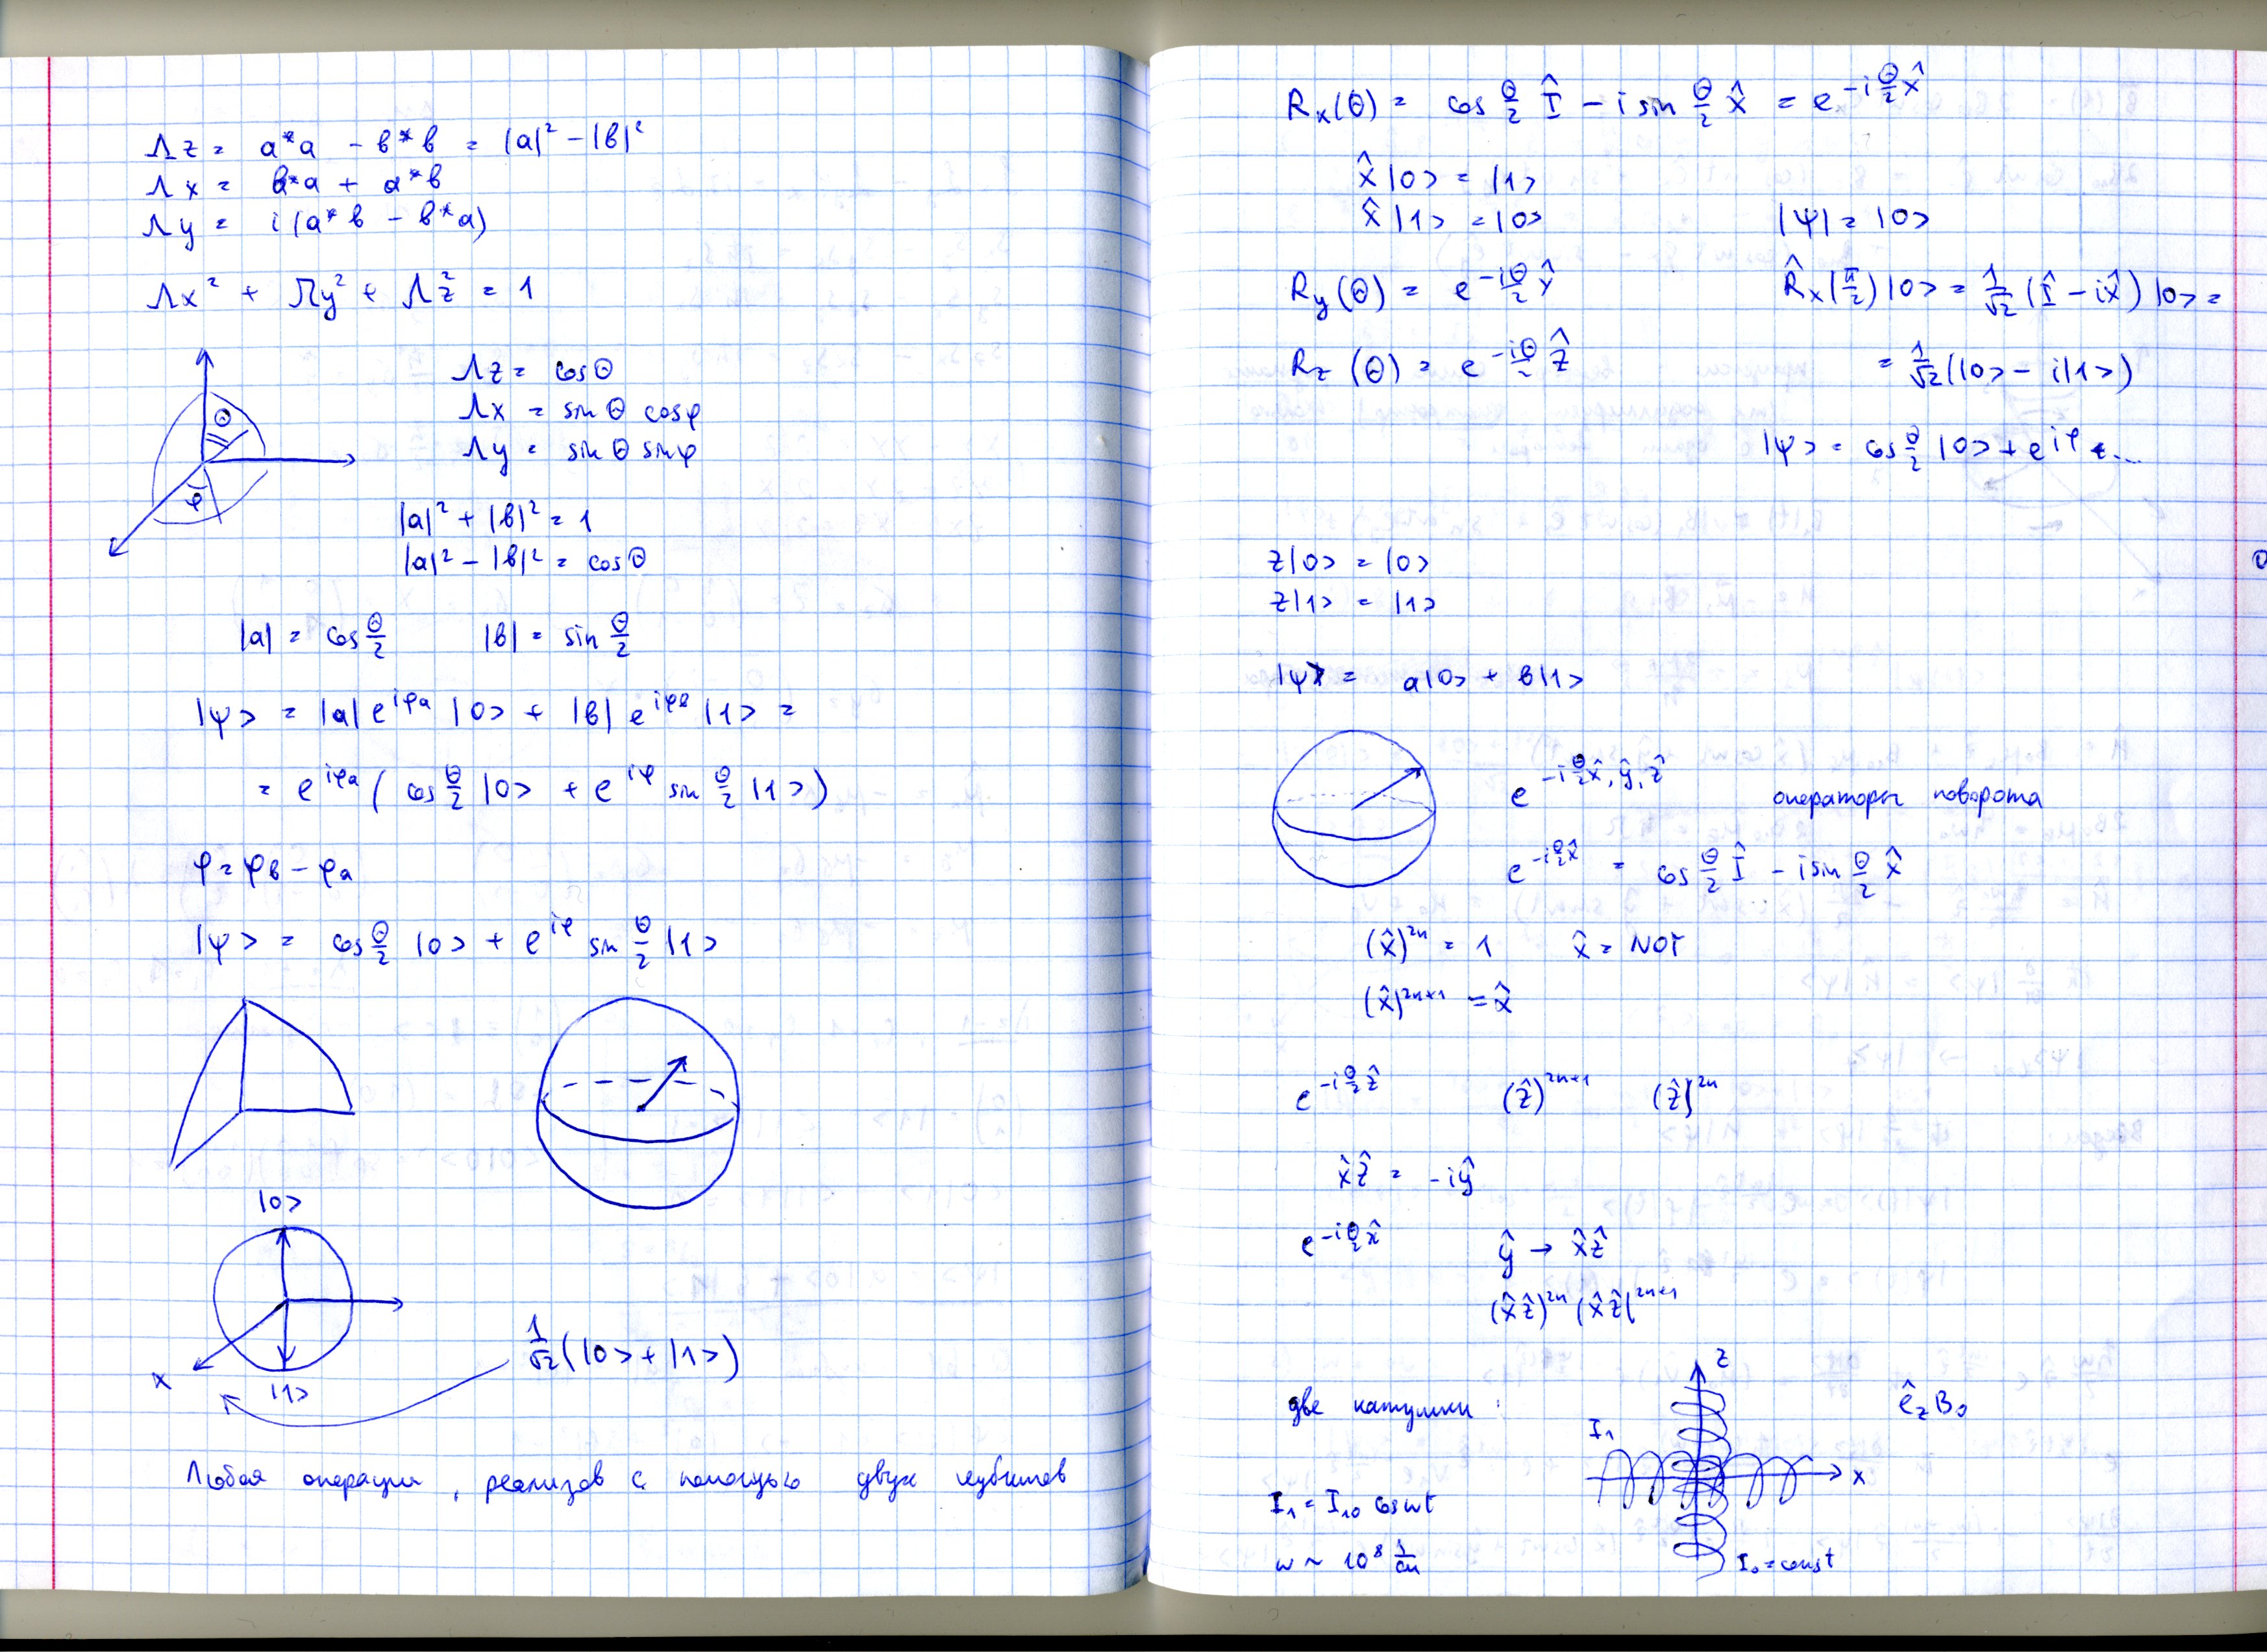 Λz = a*a - в*в = |a|² - |в|²
Λx = в*a + a*в
Λy = i(a*в - в*a)
Λx² + Λy² + Λz² = 1
Θ
φ
Λz = cosΘ
Λx = sinΘ cosφ
Λy = sinΘ sinφ
|a|² + |в|² = 1
|a|² - |в|² = cosΘ
|a| = cos Θ/2 |в| = sin Θ/2
|ψ> = |a| e^{iφa} |0> + |в| e^{iφв} |1> =
= e^{iφa} ( cos Θ/2 |0> + e^{iφ} sin Θ/2 |1>)
φ = φв - φa
|ψ> = cos Θ/2 |0> + e^{iφ} sin Θ/2 |1>
|0>
x
|1>
1/√2 (|0> + |1>)
Любая операция, реализов с помощью двух кубитов
Rx(Θ) = cos Θ/2 Î - i sin Θ/2 x̂ = e^{-i Θ/2 x̂}
x̂|0> = |1>
x̂|1> = |0>
|ψ| = |0>
Ry(Θ) = e^{-iΘ/2 ŷ}
R̂x(π/2)|0> = 1/√2 (Î - ix̂)|0> =
Rz(Θ) = e^{-iΘ/2 ẑ}
= 1/√2 (|0> - i|1>)
|ψ> = cos Θ/2 |0> + e^{iφ} ...
z|0> = |0>
z|1> = |1>
|ψ> = a|0> + в|1>
e^{-i Θ/2 x̂, ŷ, ẑ} операторы поворота
e^{-i Θ/2 x̂} = cos Θ/2 Î - i sin Θ/2 x̂
(x̂)^{2n} = 1 x̂ = NOT
(x̂)^{2n+1} = x̂
e^{-i Θ/2 ẑ} (ẑ)^{2n+1} (ẑ)^{2n}
x̂ẑ = -iŷ
e^{-i Θ/2 x̂} ŷ → x̂ẑ
(x̂ẑ)^{2n} (x̂ẑ)^{2n+1}
две катушки:
z
ê_z B₀
I₁
x
I₁ = I₁₀ cosωt
ω ~ 10⁸
I₀ = const